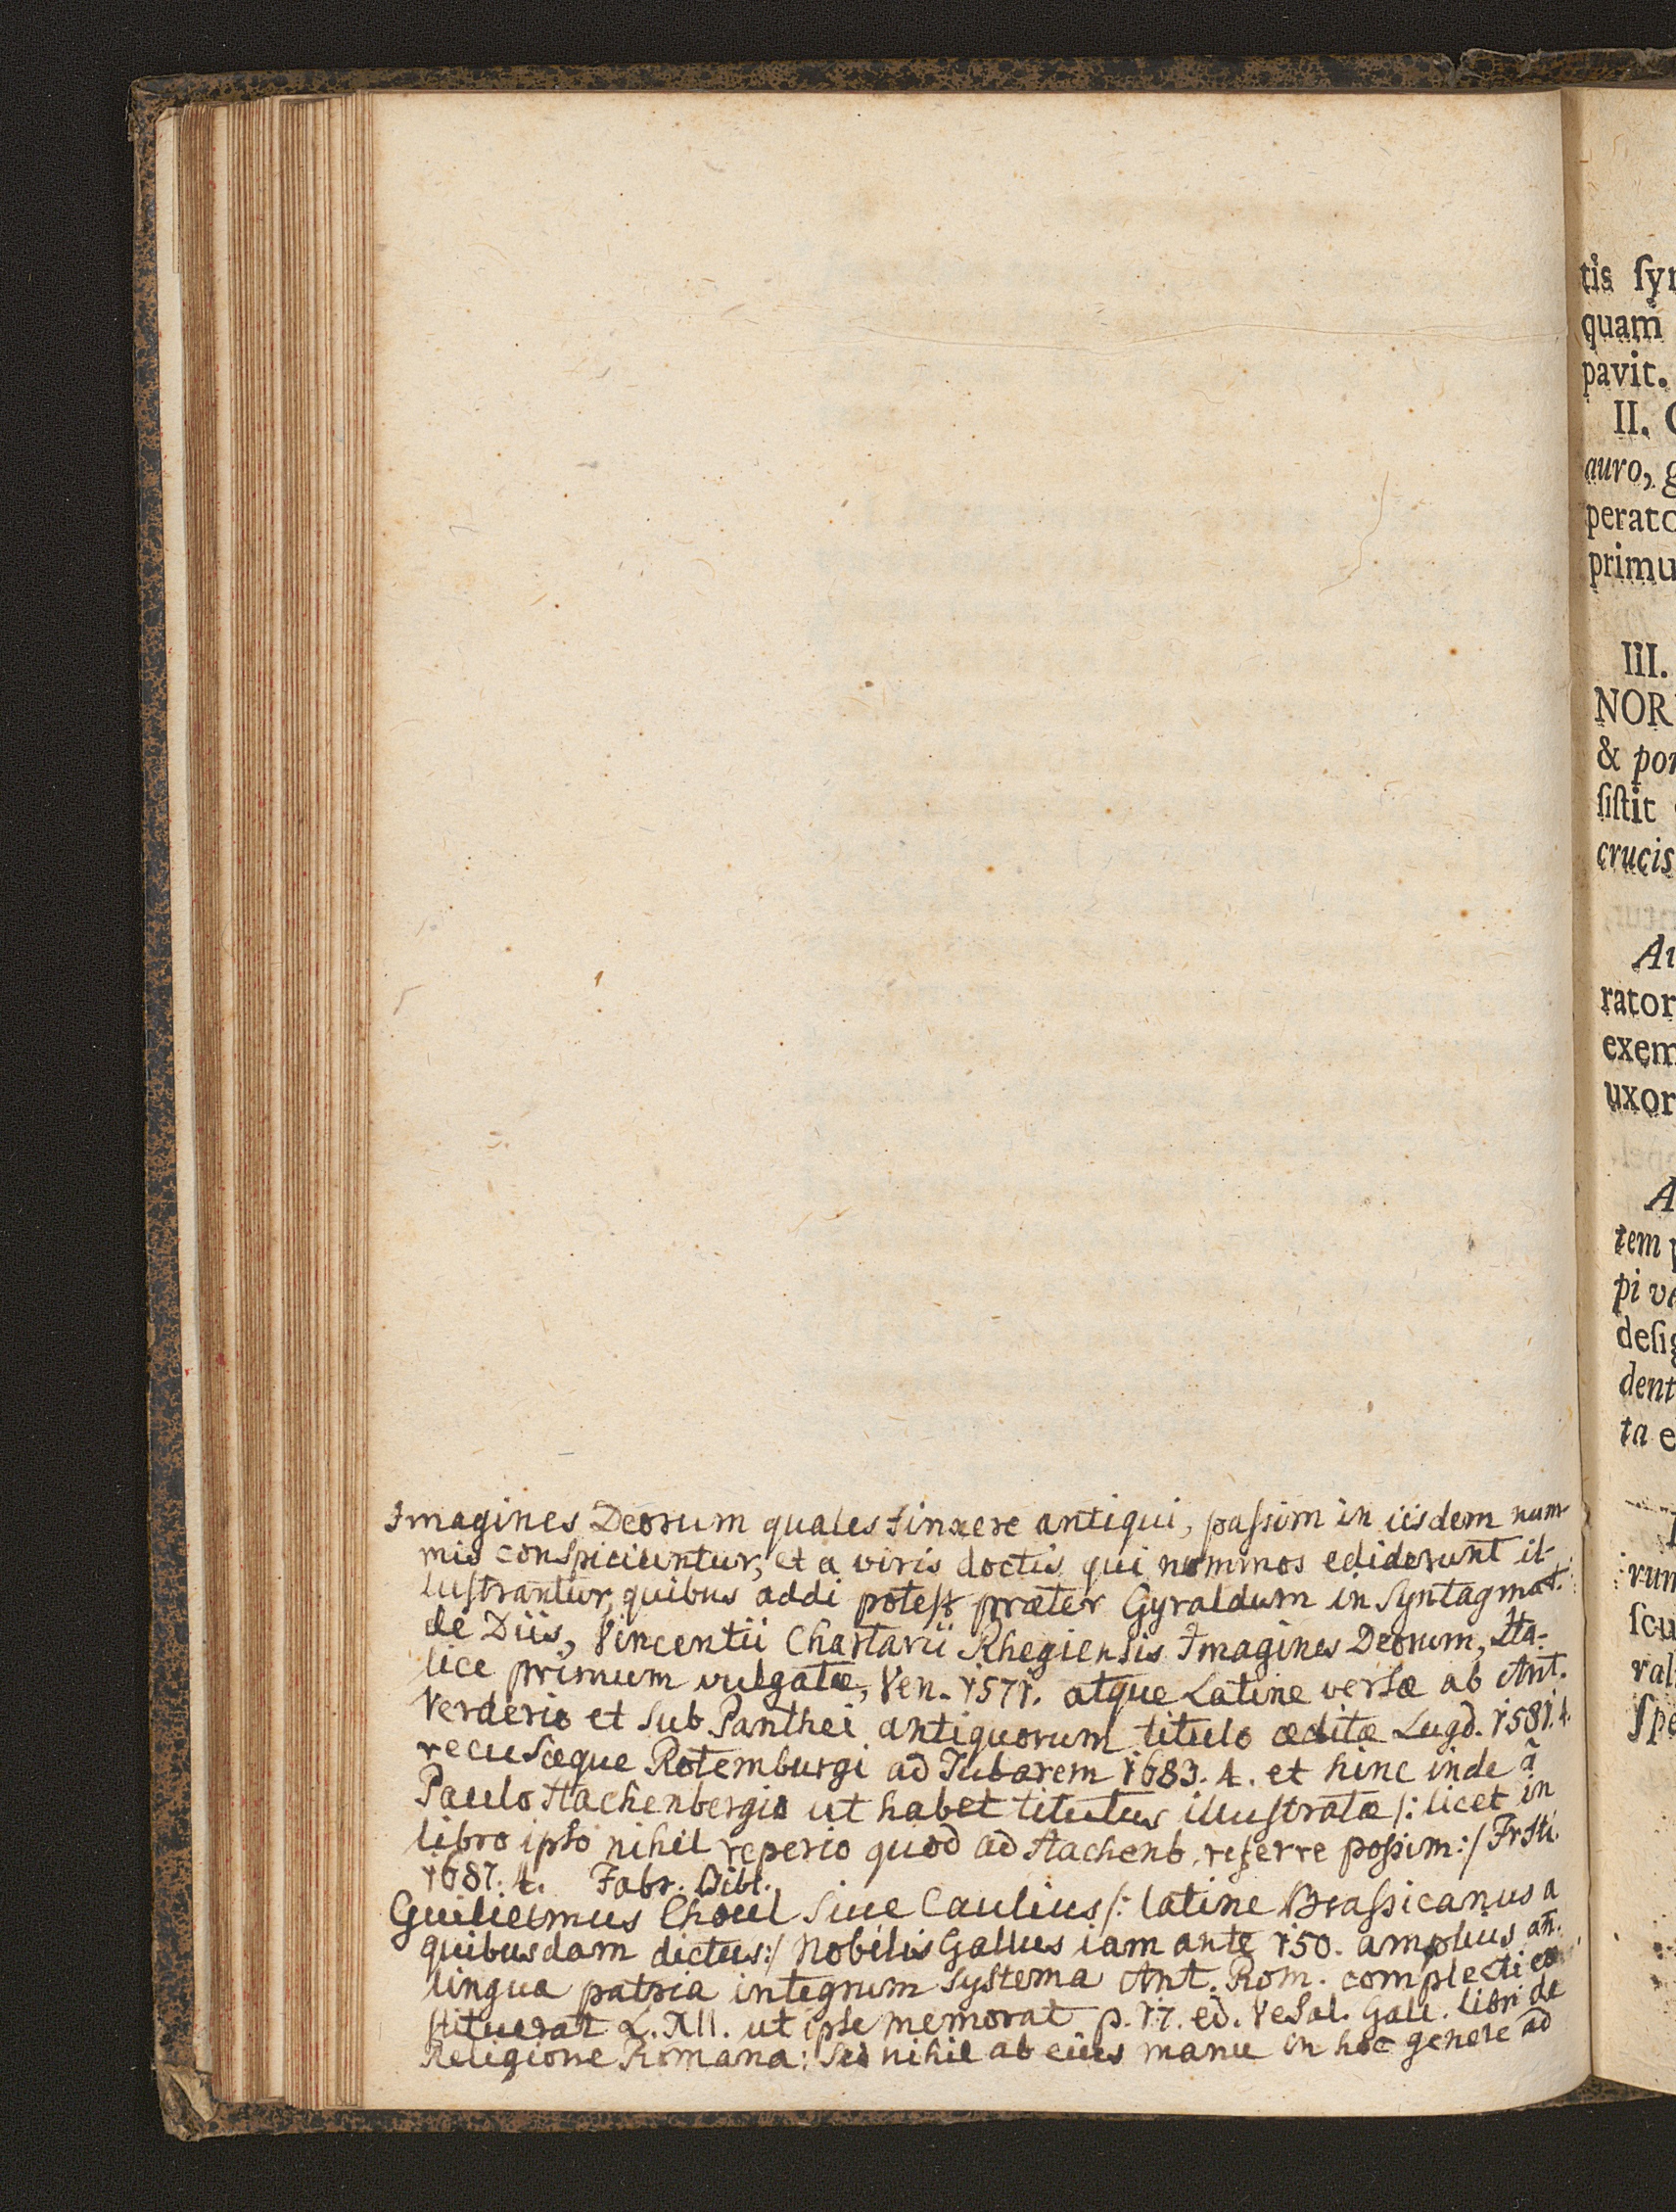 Imagines Deorum quales finxere antiqui, passim in iisdem num-
mis conspiciuntur, et a viris doctis qui nummos ediderunt il-
lustrantur, quibus addi potest præter Gyraldum in Syntagmat.
de Diis, Vincentii Chartarii Rhegiensis Imagines Deorum, Ita-
lice primum vulgatæ, Ven. 1571. atque Latine versæ ab Ant.
Verderio et sub Panthei antiquorum titulo æditæ Lugd. 1581. 4.
recusæque Rotemburgi ad Tubarem 1683. 4. et hinc inde à
Paulo Hachenbergio ut habet titulus illustratæ /: licet in
libro ipso nihil reperio quod ad Hachenb. referre possim :/ Frfti.
1687. 4. Fabr. Bibl.
Guilielmus Choul sive Caulius /: latine Brassicanus a
quibusdam dictus :/ Nobilis Gallus iam ante 150. amplius añ.
lingua patria integrum systema Ant. Rom. complecti con
stituerat L. XII. ut ipse memorat p. 17. ed. Vesal. Gall. libri de
Religione Romana: sed nihil ab eius manu in hoc genere ad
tis ſyn
quam
pavit.
II.
auro, g
perato
primu
III.
NOR
& por
ſiſtit
crucis
Au
rator
exem
uxor
A
tem p
pi ve
deſig
dent
ta e
rum
ſcu
ral
ſpe